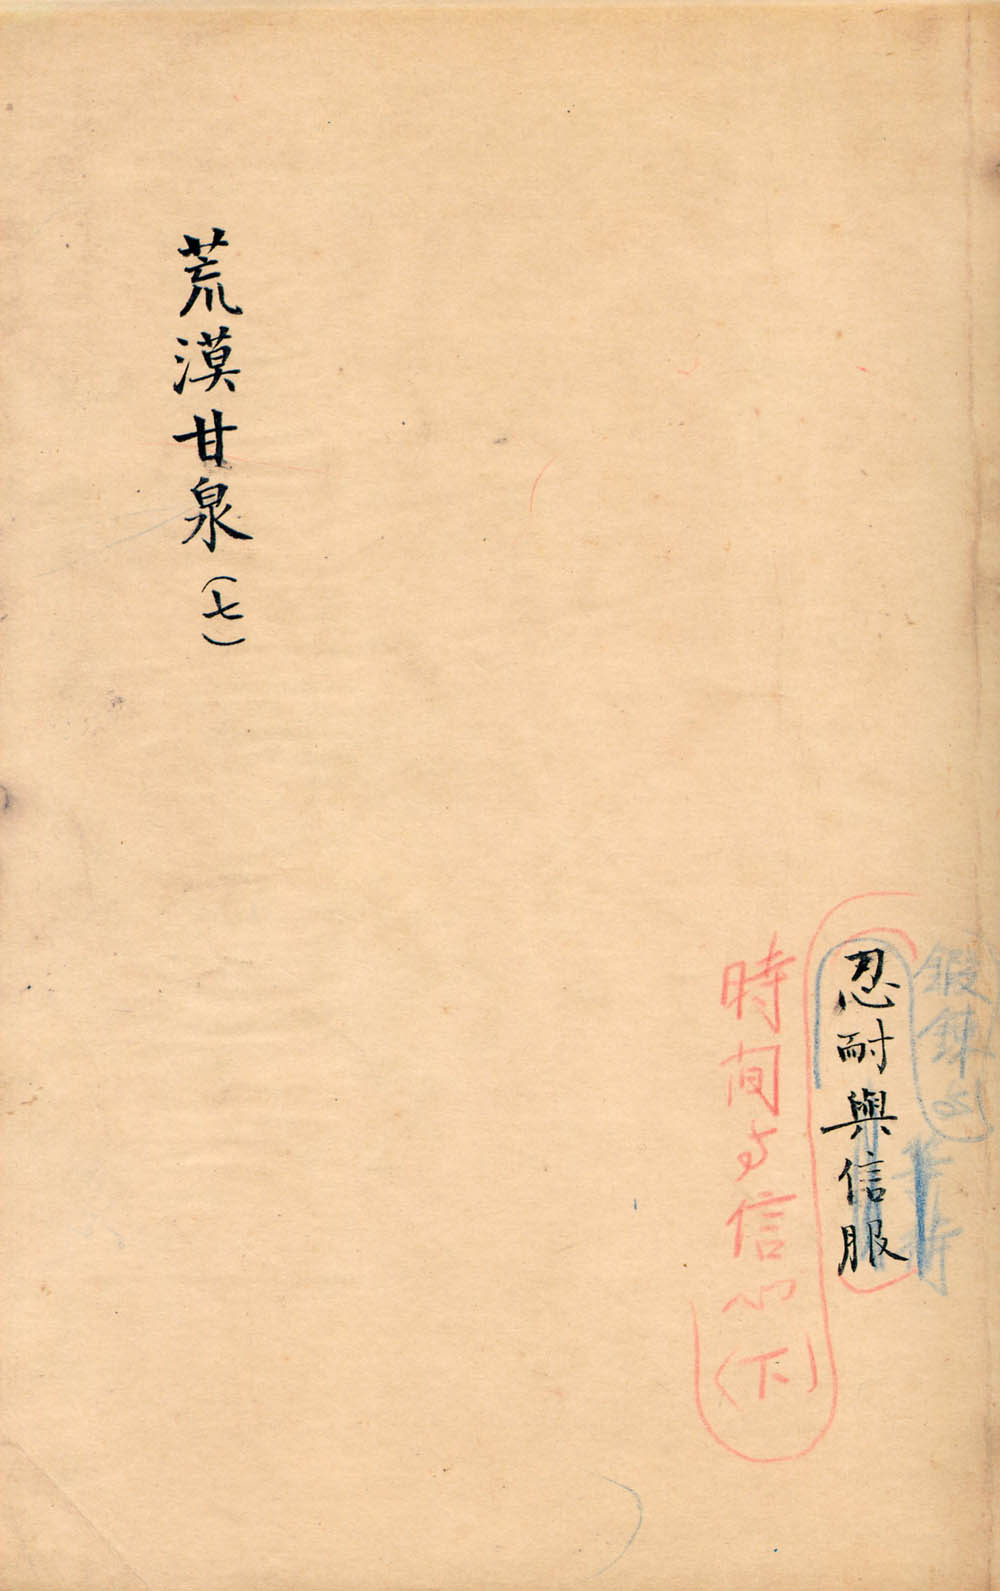 鍛鍊
忍耐與信服
時间与信心(下)
荒漠甘泉(七)